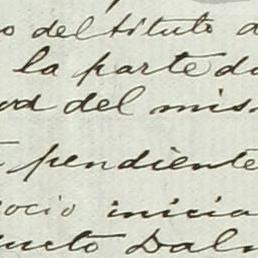 o del título d
la parte de
ud del mis
pendiente
ocio inicia